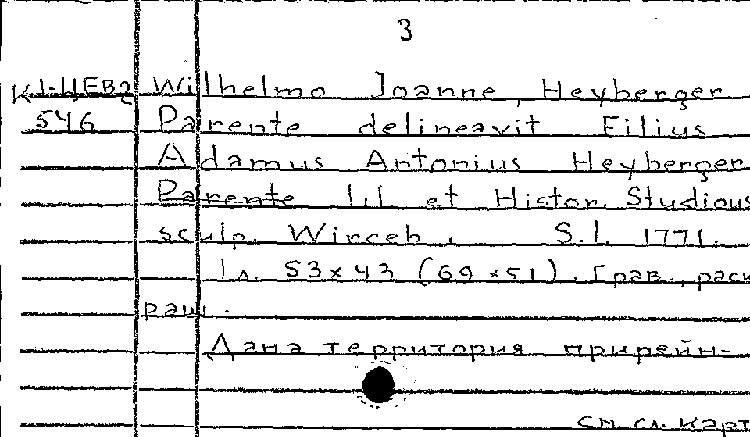 3
К 1-ЦЕВ2 Wilhelmo Joanne, Heyberger
546 Parente delineavit Filius
Adamus Antonius Heyberger
Parente I.I. et Histor. Studious
sculp. Wirceb. S.l. 1771.
1л. 53×43 (69×51). Грав., раск
раш.
Дана территория прирейн-
См. сл. карт